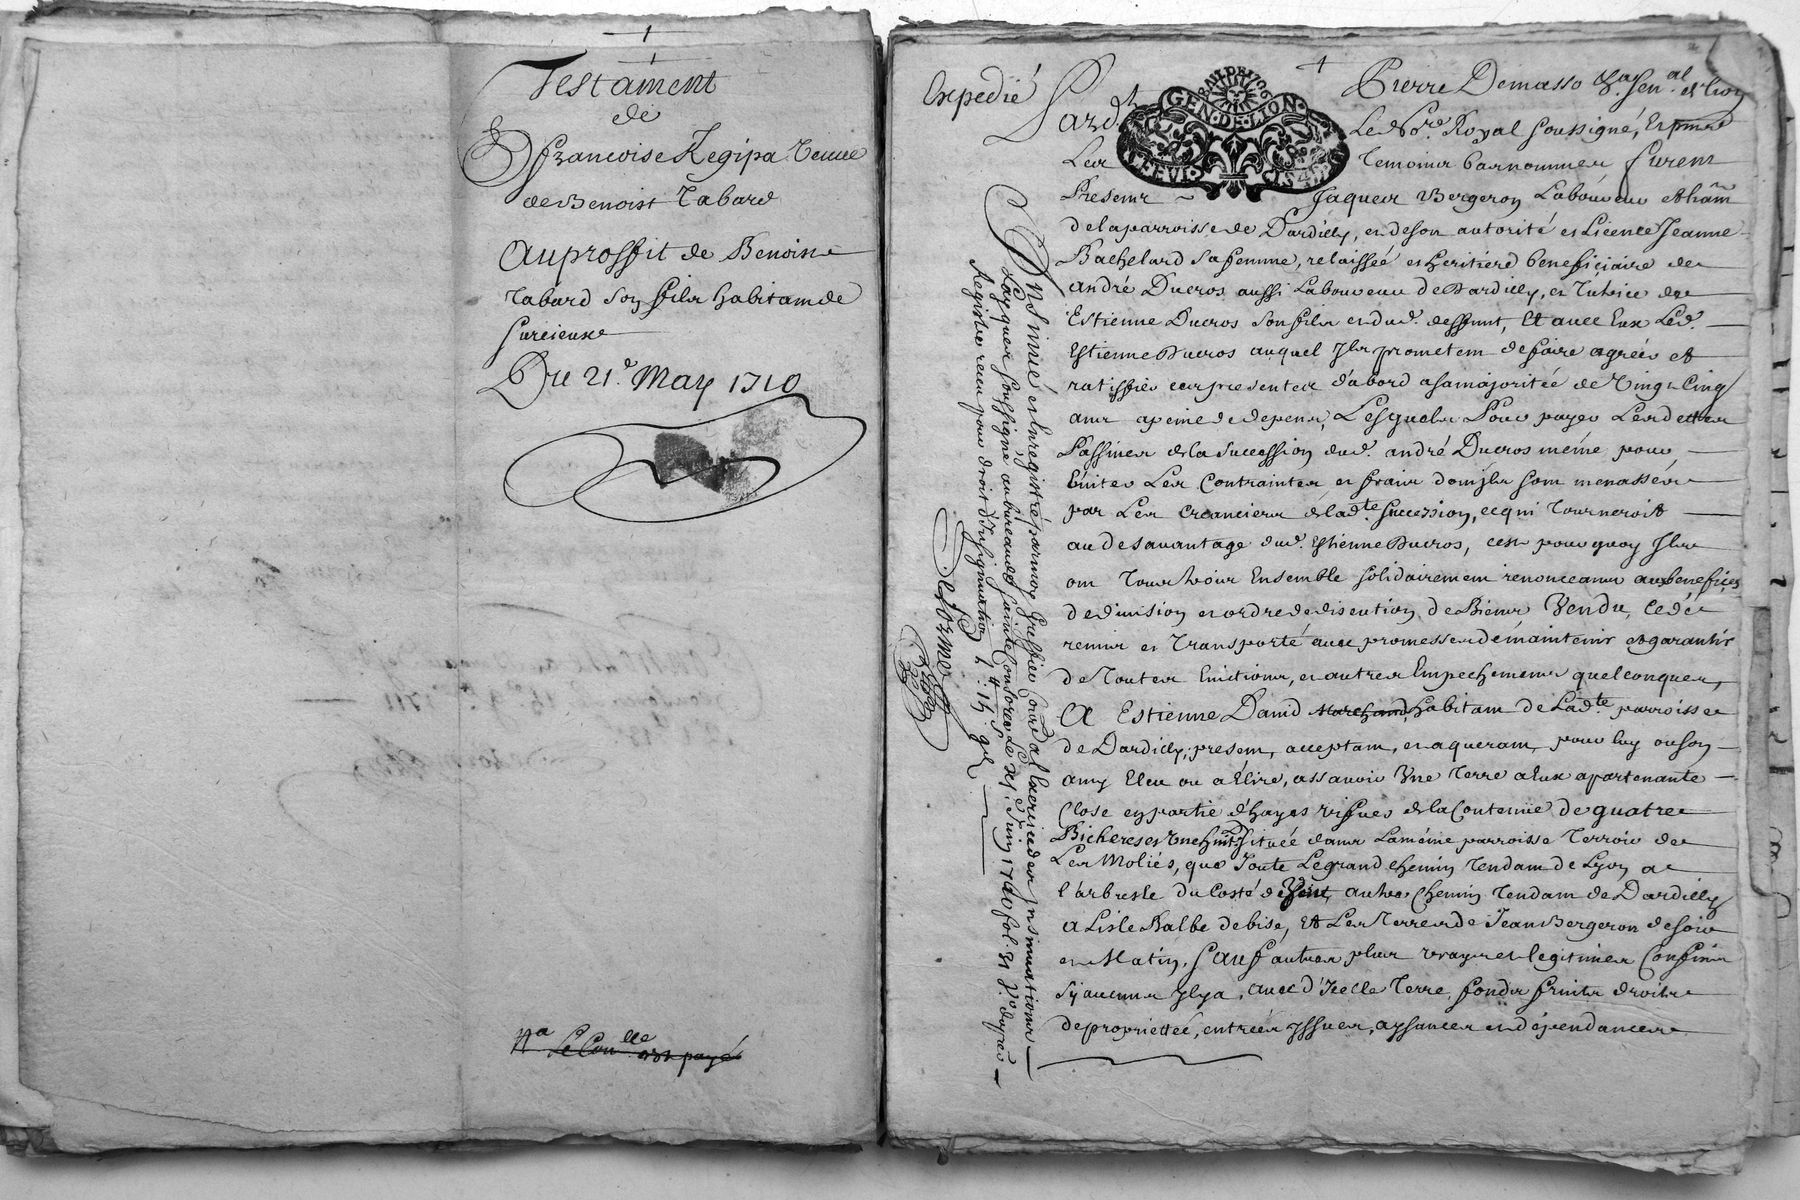 Testament
de
françoise Regipa veuve
de Benoist Tabard
Auproffit de Benoist
Tabard son fils habitant de
Du 21e. May 1710
Na Le Conlle est payé
Expedié
BAIL DE 1706
GEN·DE·LION
Pardt
Pierre Demasso
Le Nore. Royal soussigné, Et
Les Temoins bas nommes furent
Presents Jaques Bergeron Laboureur
de la parroisse de Dardilly, et de son autorité et Licence Jeanne
Bachelard sa femme, relaissée et heritière beneficiaire de
andré Ducros aussi Laboureur de Dardilly, et Tutrice de
Estienne Ducros son fils et dud. deffunt, Et avec Eux Led.
Estienne Ducros auquel Ils prometent de faire agréer et
ratiffier ces presentes d'abord asa majoritée de Vingt Cinq
ans apeine de depens, Lesquels Pour payer Les dettes
Passives de la succession dud. andré Ducros méme pour
Eviter Les Contraintes et frais dont ils sont menassés
par Les Creanciers de ladte. succession, ce qui Tourneroit
au desavantage dud. Estienne Ducros, cest pourquoy Ils
ont Tous trois Ensemble solidairement renonceants aux benefices
de division et ordre de discution de Biens Vendu, Cedé
remis et Transporté avec promesse de maintenir et garantir
de Toutes Evictions, et autres Empechements quelconques,
A Estienne David Marchand, habitant de Ladte. parroisse
de Dardilly, present, acceptant, et aquerant, pour luy ou son
amy Eleu ou a Elire, assavoir Vne Terre a Eux apartenante
Close en partie d'hayes vifves de la Contenüe de quatre
Bicherées située dans La méme parroisse Terroir de
Les Moliés, que Joute Le grand chemin Tendant de Lyon a
l'arbresle du Costé de Vent, autre Chemin Tendant de Dardilly
a Lisle Balbe de bise, Et Les Terres de Jean Bergeron de soir
et Matin, sauf autres plus vrays et legitimes Confins
sy aucuns Ilya, avec d'Icelle Terre, fonds fruits droits
de proprietée, entrées Issues, aysances et dépendances
Insinué et Enregistré par moy Greffier Exercice des Insinuations
Laÿques soussigné, au bureau de sainte Consorce Le Juin 1710 fol. 31 Vo. dupres
Registre reçu pour droit d'Insignuation
Delorme